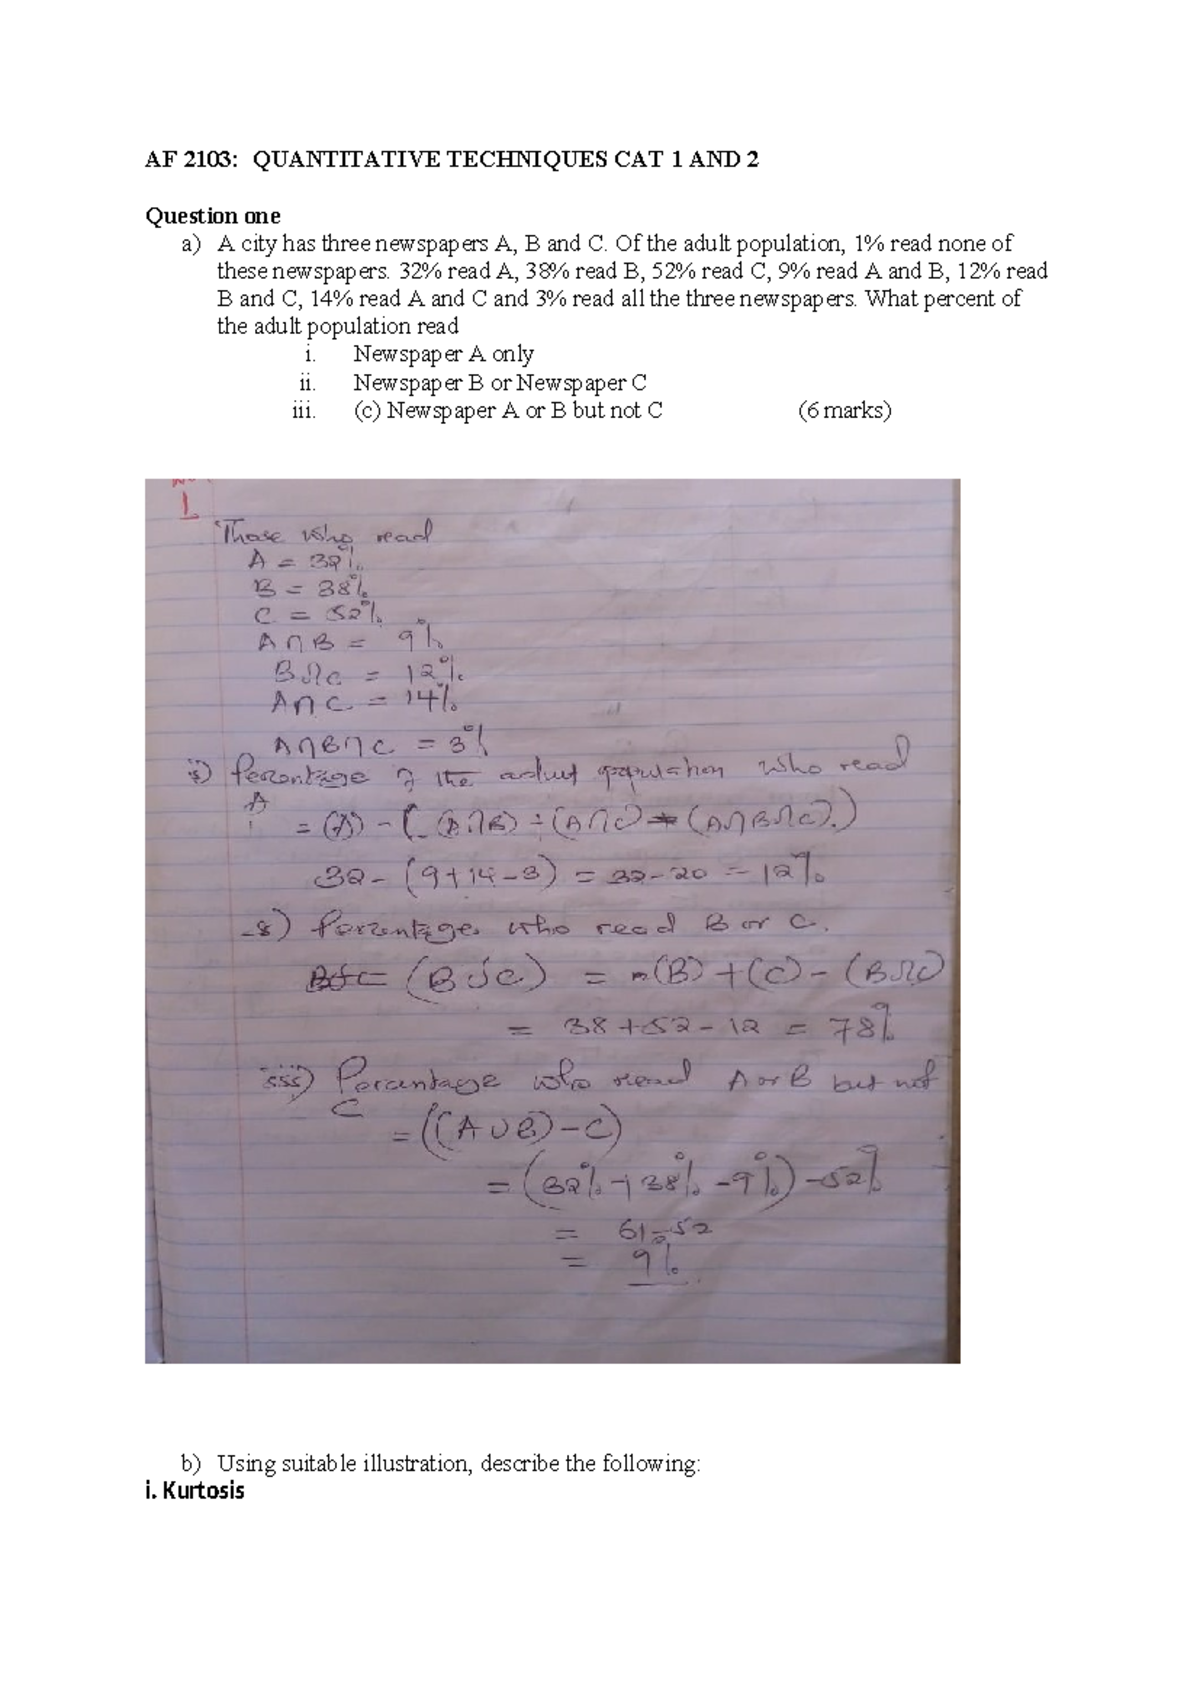 AF 2103: QUANTITATIVE TECHNIQUES CAT 1 AND 2
Question one
a) A city has three newspapers A, B and C. Of the adult population, 1% read none of
these newspapers. 32% read A, 38% read B, 52% read C, 9% read A and B, 12% read
B and C, 14% read A and C and 3% read all the three newspapers. What percent of
the adult population read
i. Newspaper A only
ii. Newspaper B or Newspaper C
iii. (c) Newspaper A or B but not C (6 marks)
1
Those who read
A = 32%
B = 38%
C = 52%
A∩B = 9%
B∩C = 12%
A∩C = 14%
A∩B∩C = 3%
i) Percentage of the adult population who read
A
= (A) - ( (A∩B) + (A∩C) - (A∩B∩C).)
32 - (9+14-3) = 32-20 = 12%
Percentage who read B or C.
(B∪C) = n(B) + (C) - (B∩C)
= 38+52-12 = 78%
iii) Percentage who read A or B but not
C
= ((A∪B)-C)
= (32%+38%-9%)-52%
= 61-52
= 9%
b) Using suitable illustration, describe the following:
i. Kurtosis